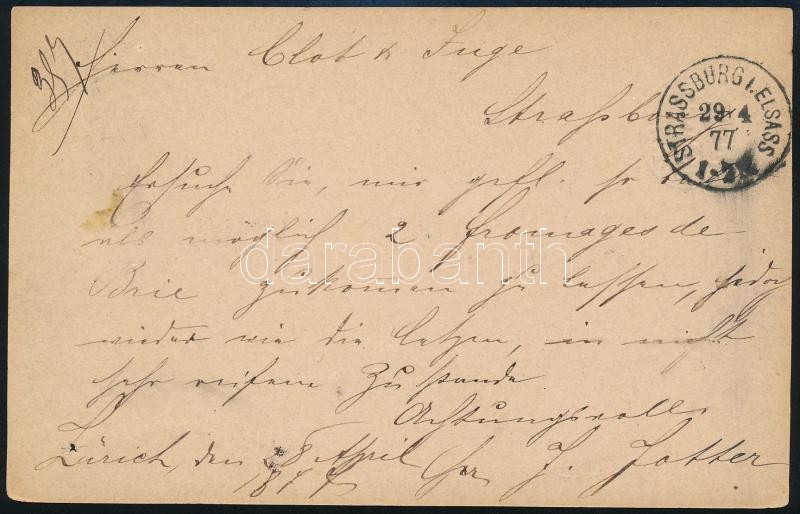 Herren Clot & Juge
Straßburg
STRASSBURG i. ELSASS
29 4
77
Ersuche Sie, mir gefl. so bald
als möglich 2 fromages de
darabanth
Brie zukomen zu lassen, jedoch
wieder wie die letzen, in nicht
sehr reifem Zustande
Achtungsvoll
Zürich, den 28 April J. Jotter
1877